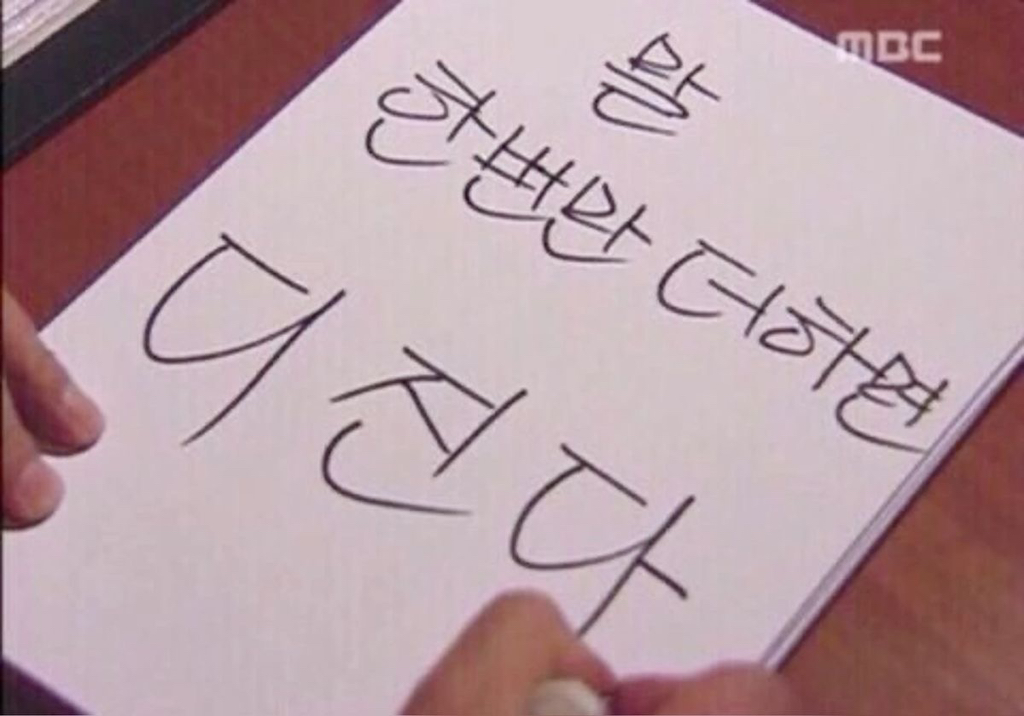 말
한번만 더하면
디진다
MBC